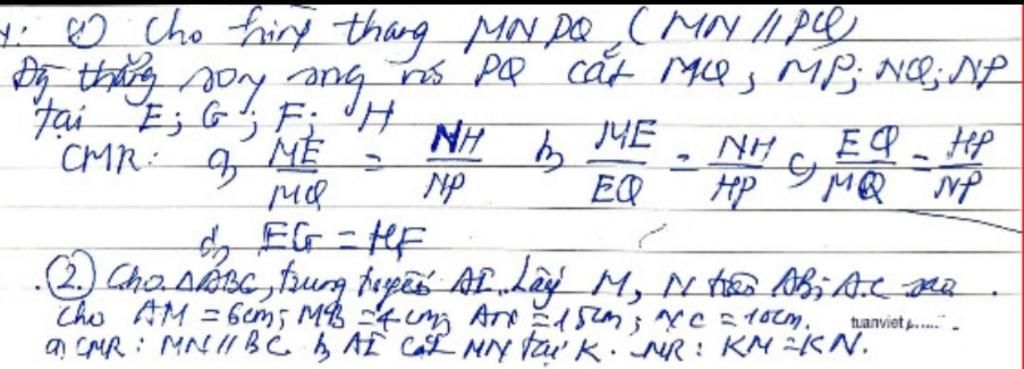 ① Cho hình thang MNPQ (MN // PQ)
Đg thẳng song song với PQ cắt MQ; MP; NQ; NP
tại E; G; F; H
CMR: a, ME/MQ = NH/NP b, ME/EQ = NH/HP c, EQ/MQ = HP/NP
d, EG = HF
② Cho ΔABC, trung tuyến AI. Lấy M, N trên AB; AC sao
cho AM = 6cm; MB = 4cm; = 15cm; NC = 10cm. tuanviet
a, CMR: MN // BC b, AI cắt MN tại K. : KM = KN.